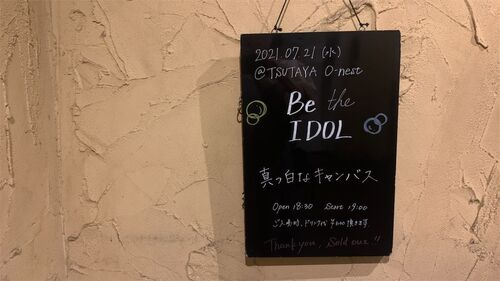 2021.07.21(水)
@TSUTAYA O-nest
Be the
IDOL
真っ白なキャンバス
Open 18:30 Start 19:00
ご入場時、ドリンク代¥600頂きます。
Thank you, Sold out!!